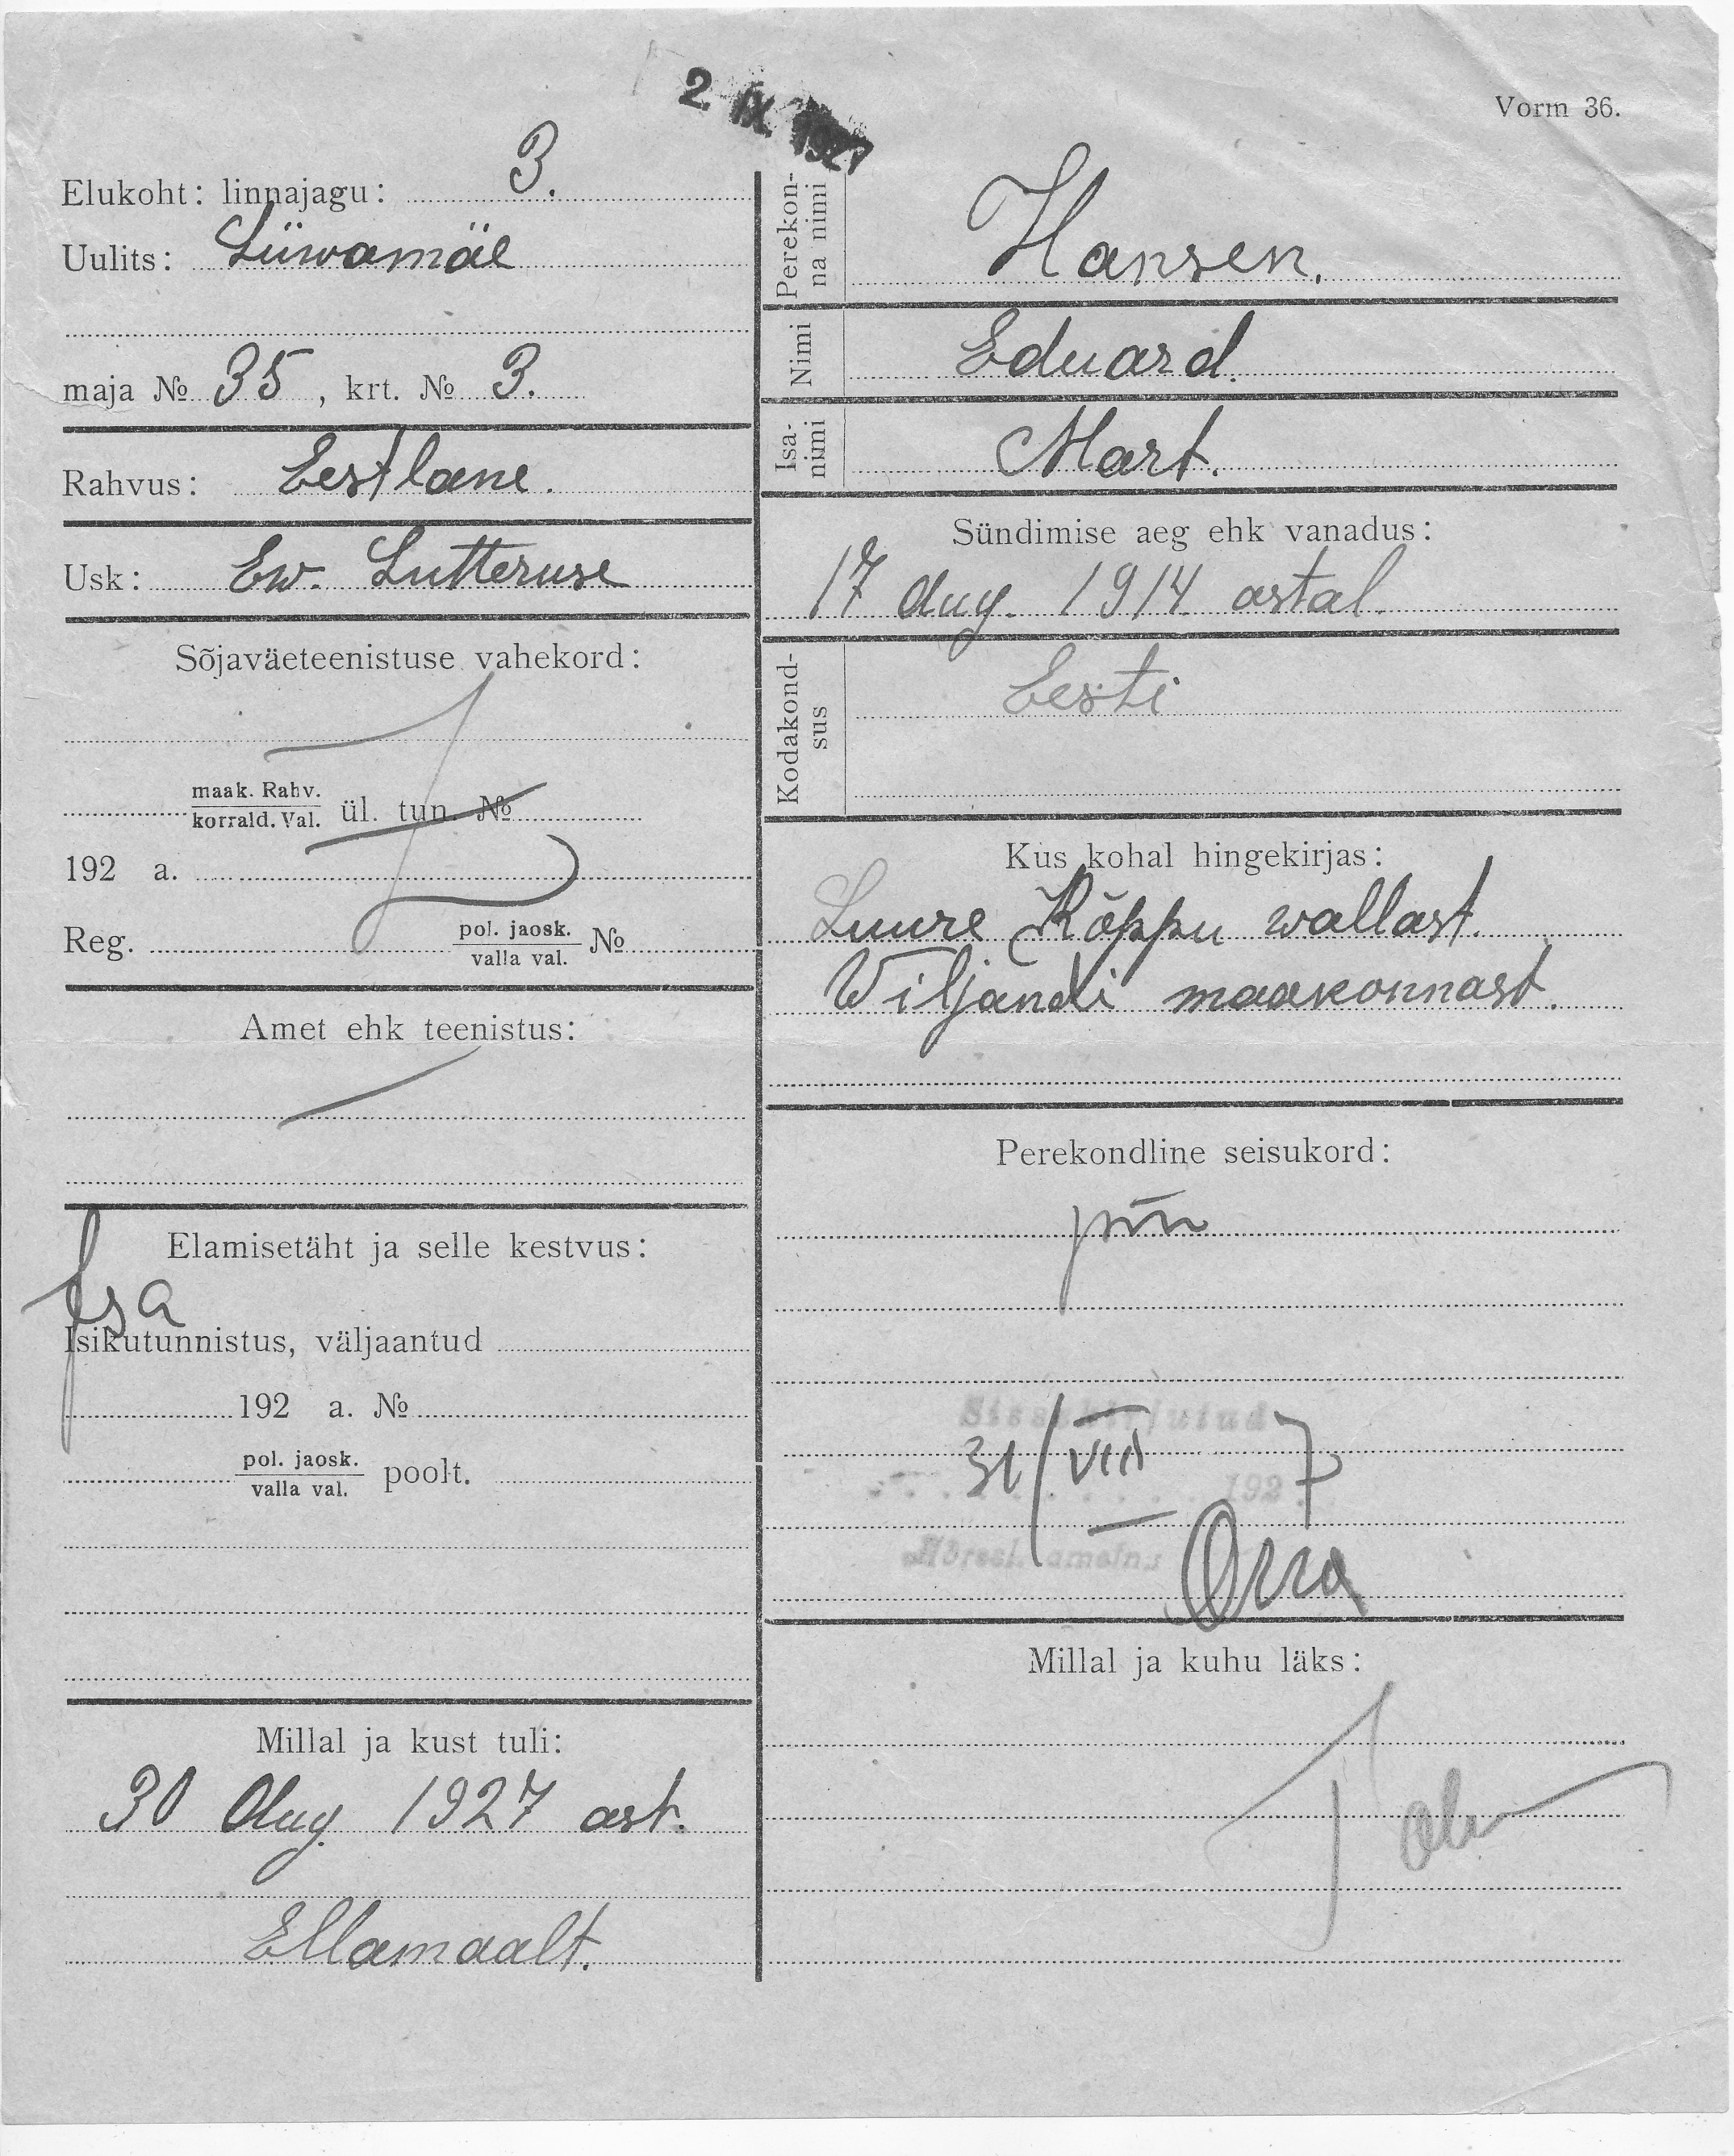 2. IX. 1927
Vorm 36.
Elukoht: linnajagu: 3.
Uulits: Liiwamäe
maja № 35, krt. № 3.
Rahvus: Eestlane.
Usk: Ew. Lutteruse
Sõjaväeteenistuse vahekord:
maak. Rahv.
korrald. Val. ül. tun. №
192 a.
Reg. pol. jaosk. №
valla val.
Amet ehk teenistus:
Elamisetäht ja selle kestvus:
Isa
Isikutunnistus, väljaantud
192 a. №
pol. jaosk.
valla val. poolt.
Millal ja kust tuli:
30 Aug. 1927 ast.
Ellamaalt.
Perekon-
na nimi
Hansen.
Nimi
Eduard.
Isa-
nimi
Mart.
Sündimise aeg ehk vanadus:
17 Aug. 1914 astal.
Kodakond-
sus
Eesti
Kus kohal hingekirjas:
Suure Kõppu wallast.
Wiljandi maakonnast.
Perekondline seisukord:
Sissekirjutud
31/VIII 7
192
Millal ja kuhu läks: